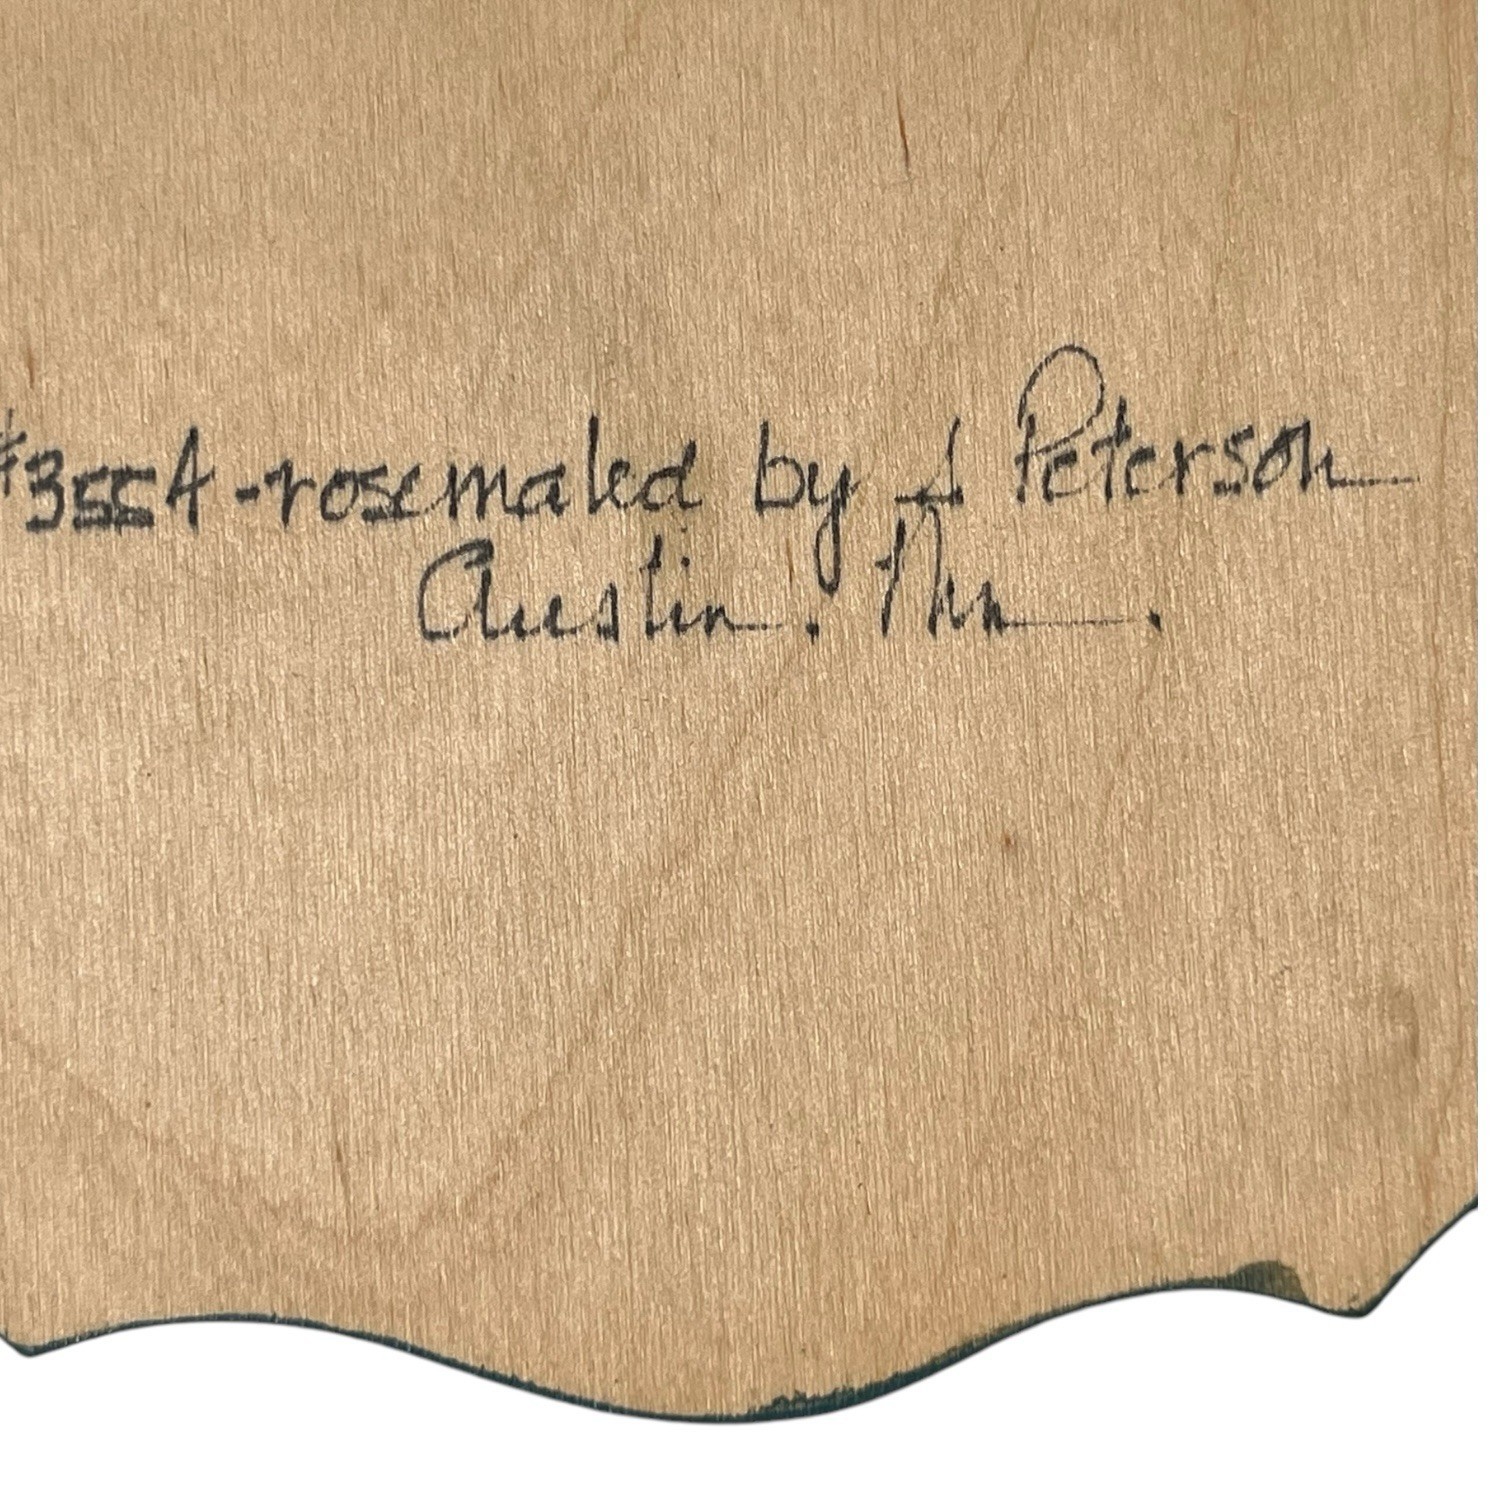 #3554-rosemaled by J Peterson
Austin. Mn.